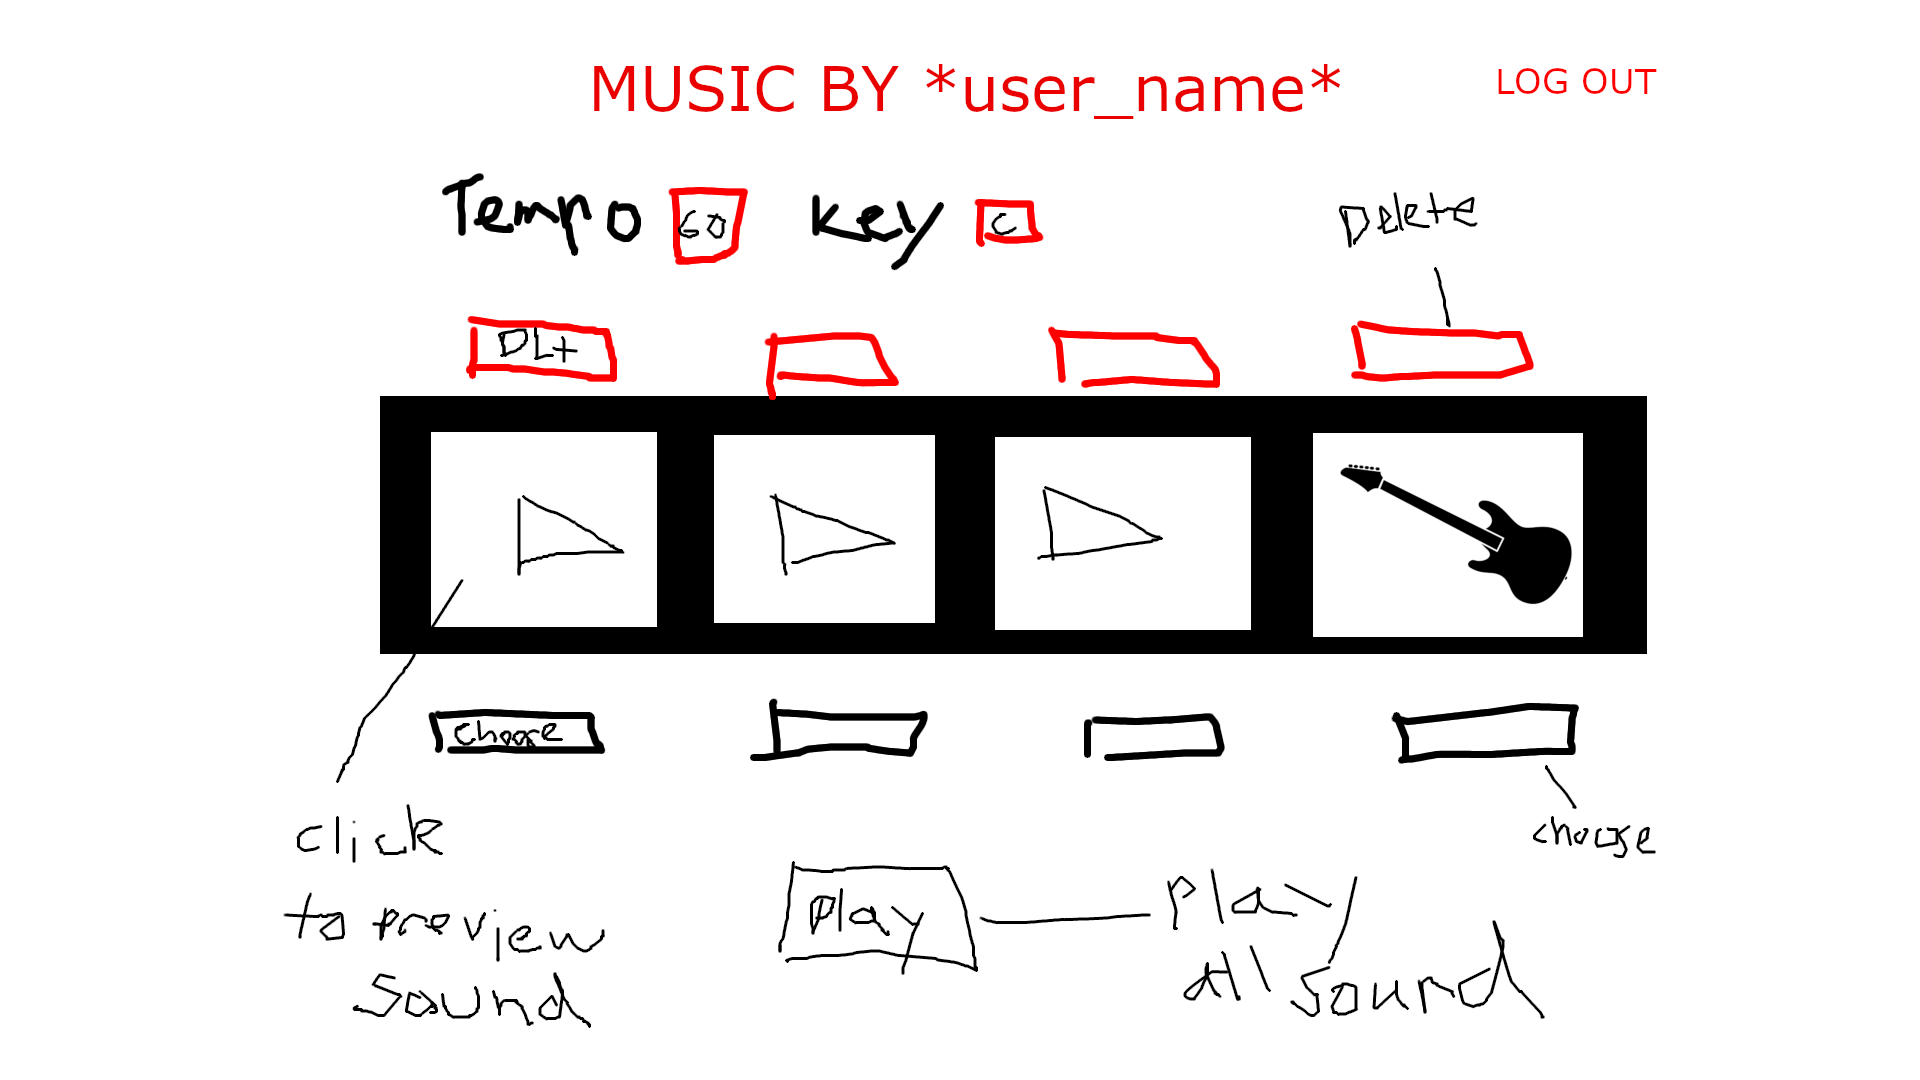 MUSIC BY *user_name*
LOG OUT
Tempo 60 Key C
Delete
DLt
choose
choose
click
to preview
sound
Play
play
all sound